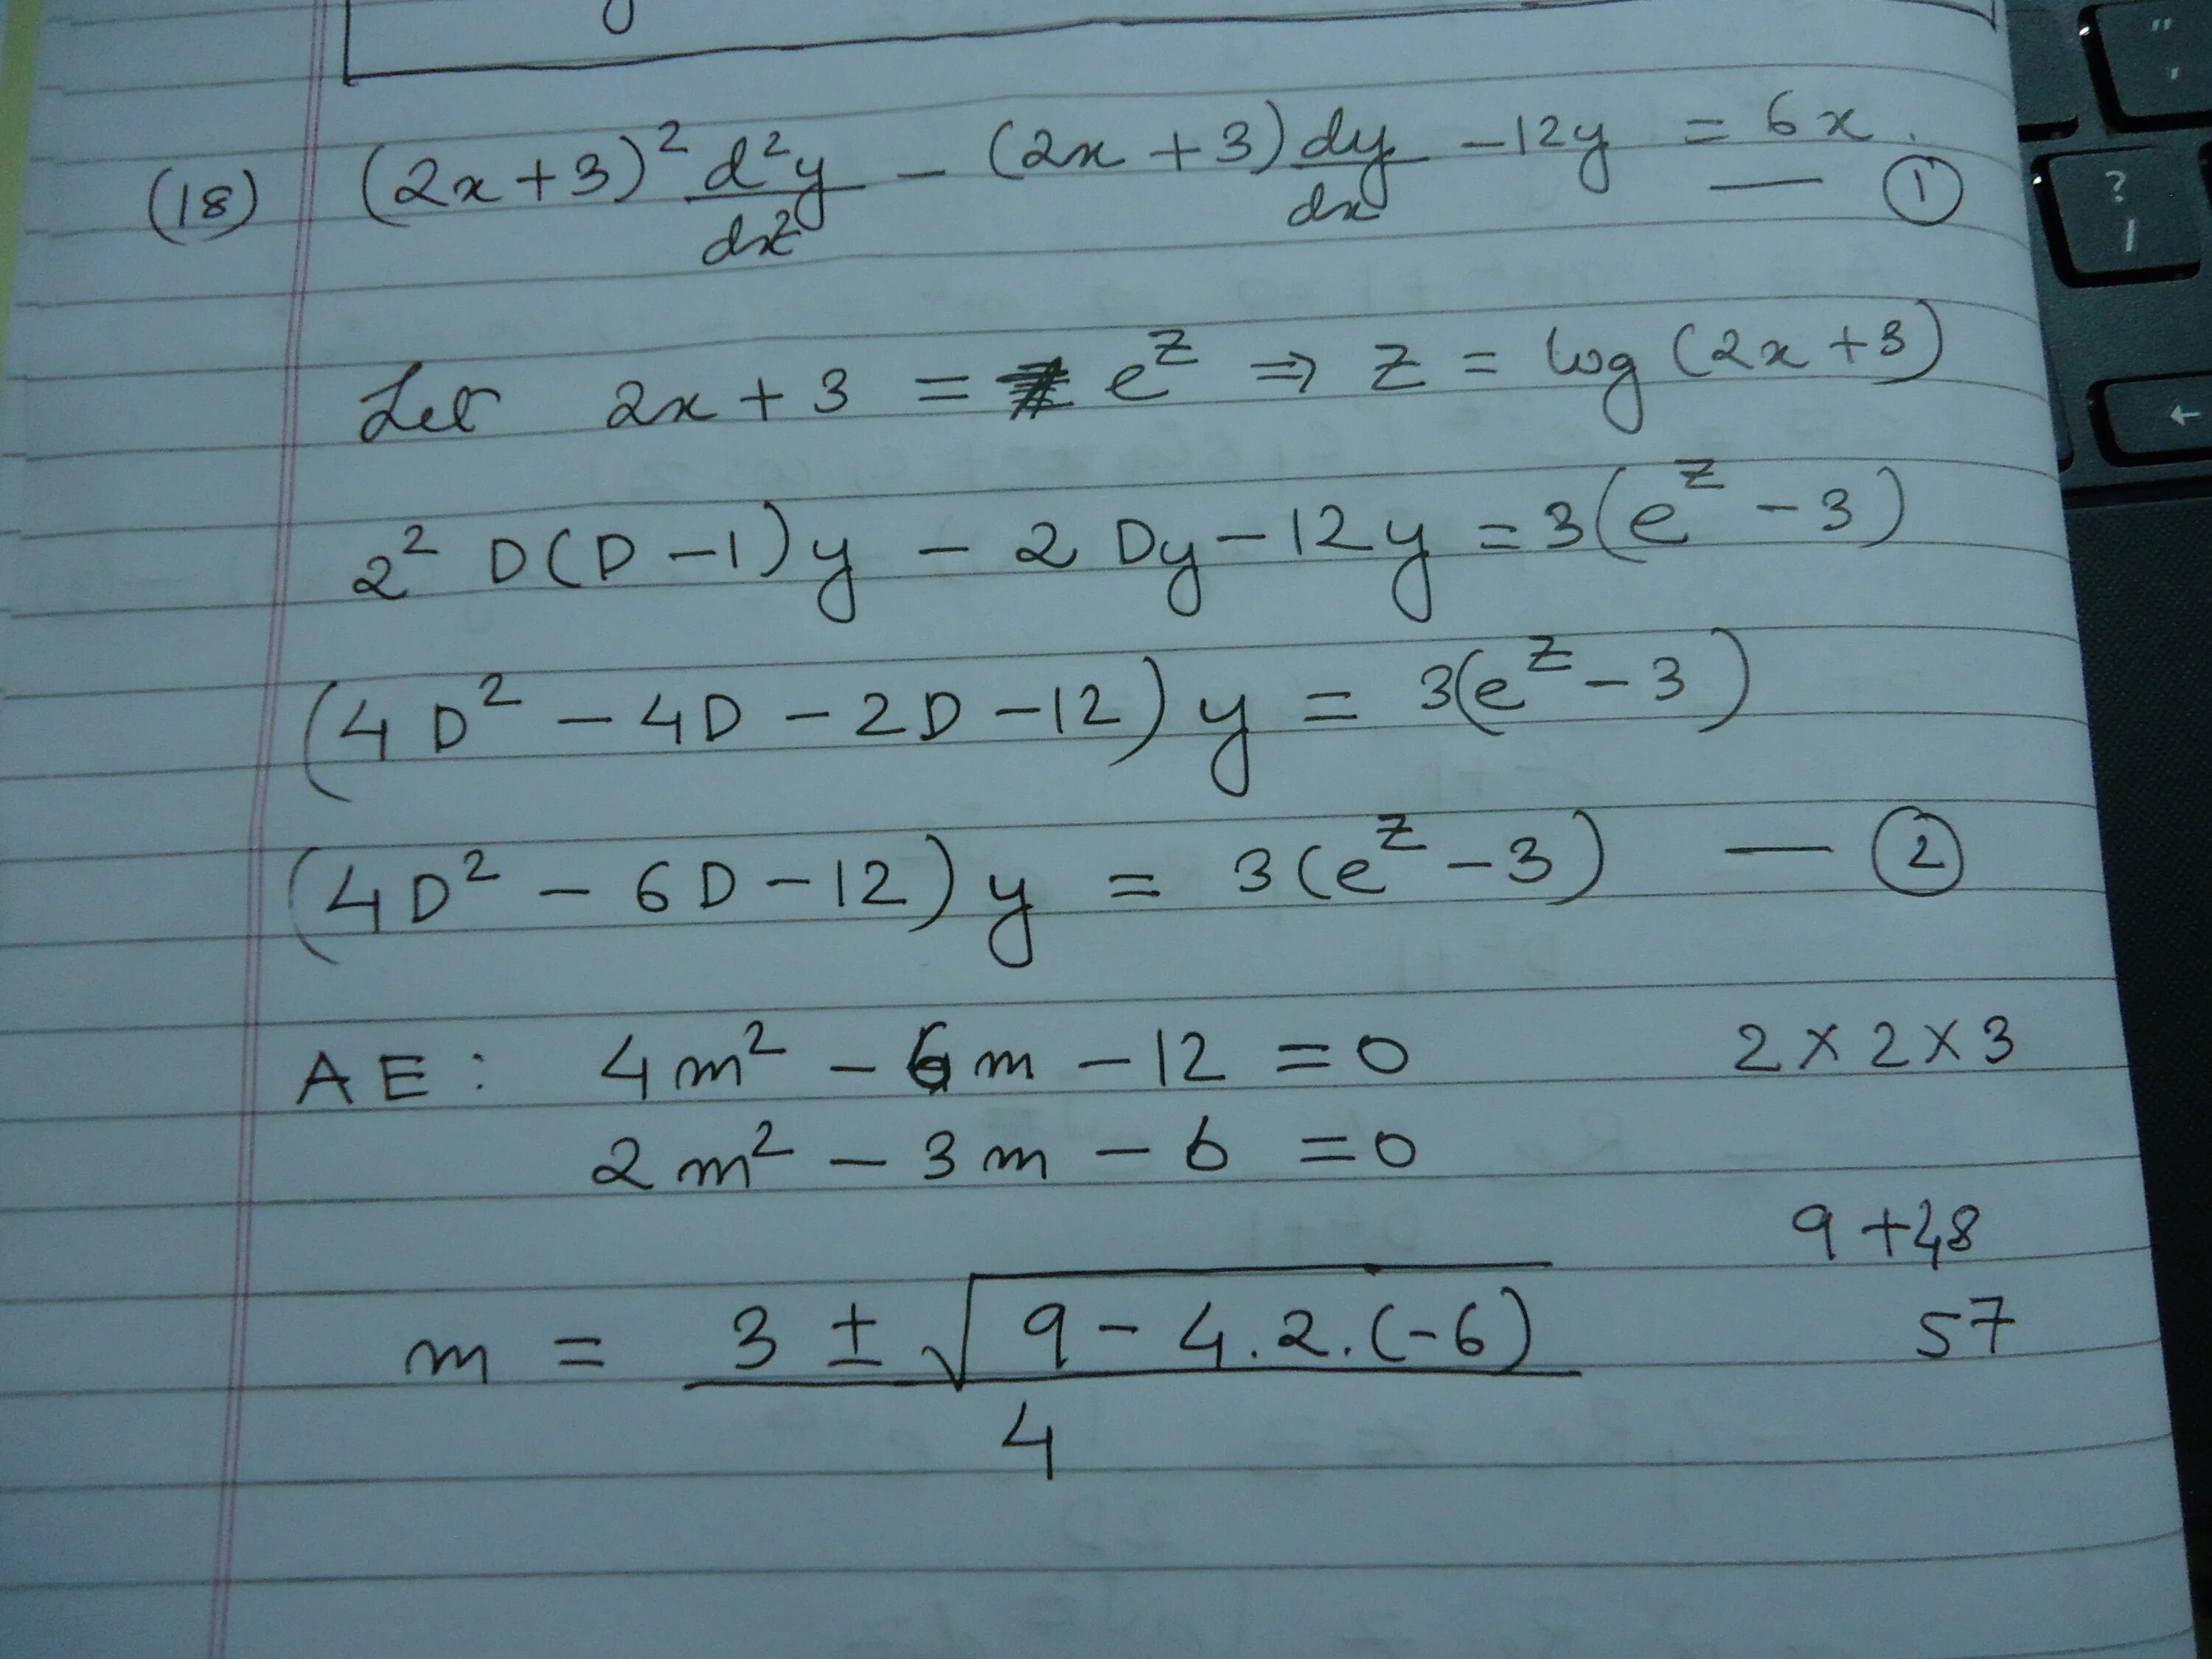 (18) (2x+3)² d²y/dx² - (2x+3) dy/dx - 12y = 6x. — ①
Let 2x+3 = e^z ⇒ z = log(2x+3)
2² D(D-1)y - 2Dy - 12y = 3(e^z - 3)
(4D² - 4D - 2D - 12)y = 3(e^z - 3)
(4D² - 6D - 12)y = 3(e^z - 3) — ②
AE: 4m² - 6m - 12 = 0 2×2×3
2m² - 3m - 6 = 0
9+48
m = 3 ± √(9 - 4.2.(-6)) / 4 57